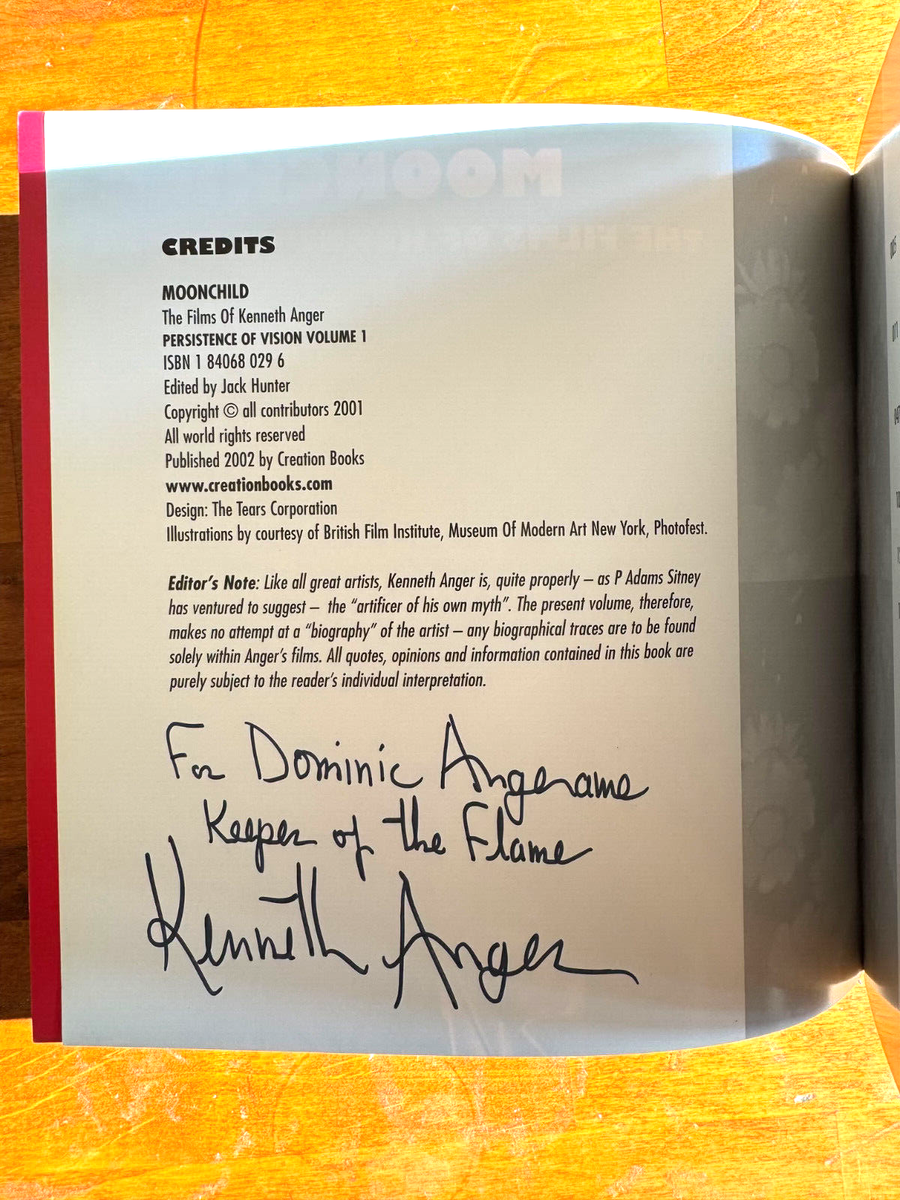 CREDITS
MOONCHILD
The Films Of Kenneth Anger
PERSISTENCE OF VISION VOLUME 1
ISBN 1 84068 029 6
Edited by Jack Hunter
Copyright © all contributors 2001
All world rights reserved
Published 2002 by Creation Books
www.creationbooks.com
Design: The Tears Corporation
Illustrations by courtesy of British Film Institute, Museum Of Modern Art New York, Photofest.
Editor's Note: Like all great artists, Kenneth Anger is, quite properly – as P Adams Sitney
has ventured to suggest – the "artificer of his own myth". The present volume, therefore,
makes no attempt at a "biography" of the artist – any biographical traces are to be found
solely within Anger's films. All quotes, opinions and information contained in this book are
purely subject to the reader's individual interpretation.
For Dominic Angerame
Keeper of the Flame
Kenneth Anger